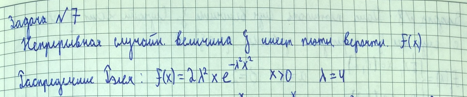 Задача №7
Непрерывная случайн. величина ξ имеет плотн. вероятн. f(x)
Распределение Рэлея: f(x) = 2λ²xe^{-λ²x²} x>0 λ=4